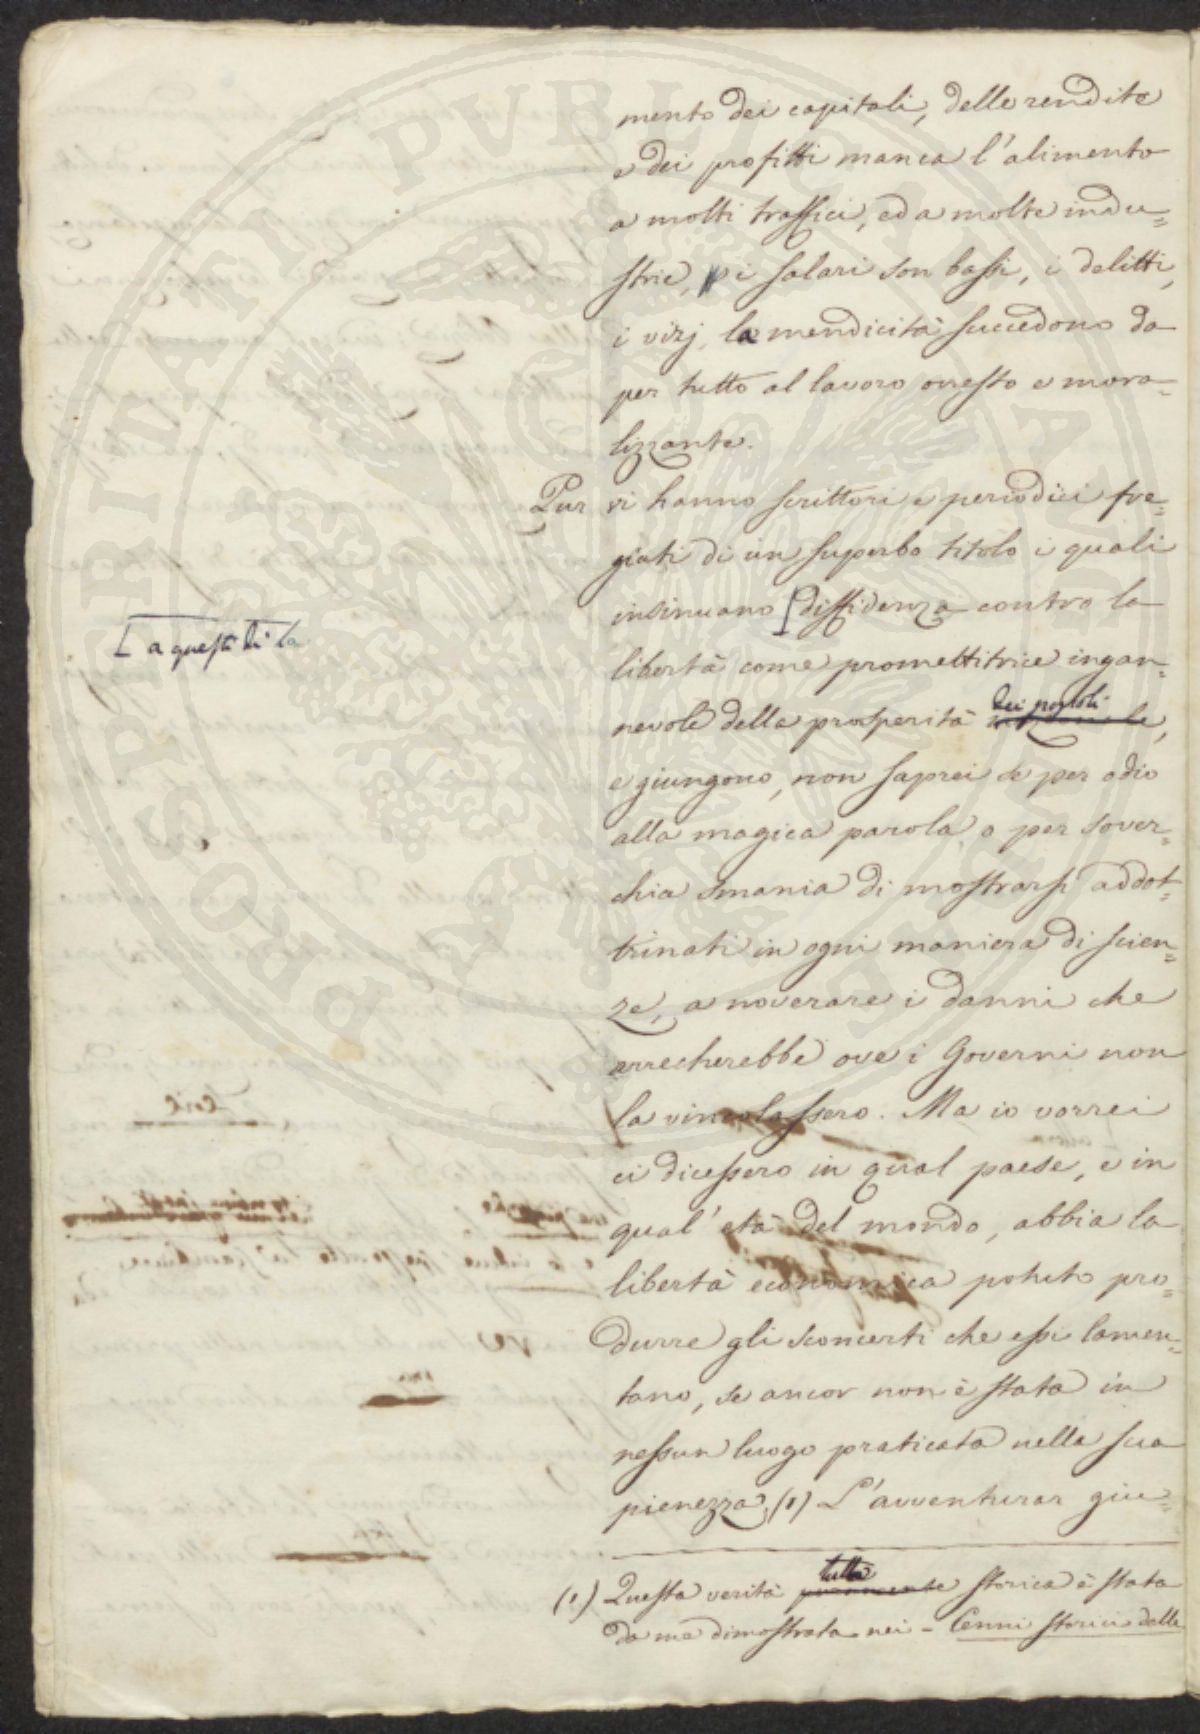 mento dei capitali, delle rendite
e dei profitti manca l'alimento
a molti traffici, ed a molte indu=
strie, i salari son bassi, i delitti,
i vizj, la mendicità succedono da
per tutto al lavoro onesto e mora=
lizzante.
Pur vi hanno scrittori e periodici fre=
giati di un superbo titolo i quali
insinuano [diffidenza contro la
[a questi dì la
libertà come promettitrice ingan=
nevole della prosperità dei popoli,
e giungono, non saprei se per odio
alla magica parola, o per sover=
chia smania di mostrarsi addot=
trinati in ogni maniera di scien=
ze, a noverare i danni che
arrecherebbe ove i Governi non
la vincolassero. Ma io vorrei
ci dicessero in qual paese, e in
qual' età del mondo, abbia la
libertà economica potuto pro=
durre gli sconcerti che essi lamen=
tano, se ancor non è stata in
nessun luogo praticata nella sua
pienezza.(1) L'avventurar giu=
(1) Questa verità tutta storica è stata
da me dimostrata nei - Cenni storici delle
PROSPERITATI PVBLICAE AVGENDAE